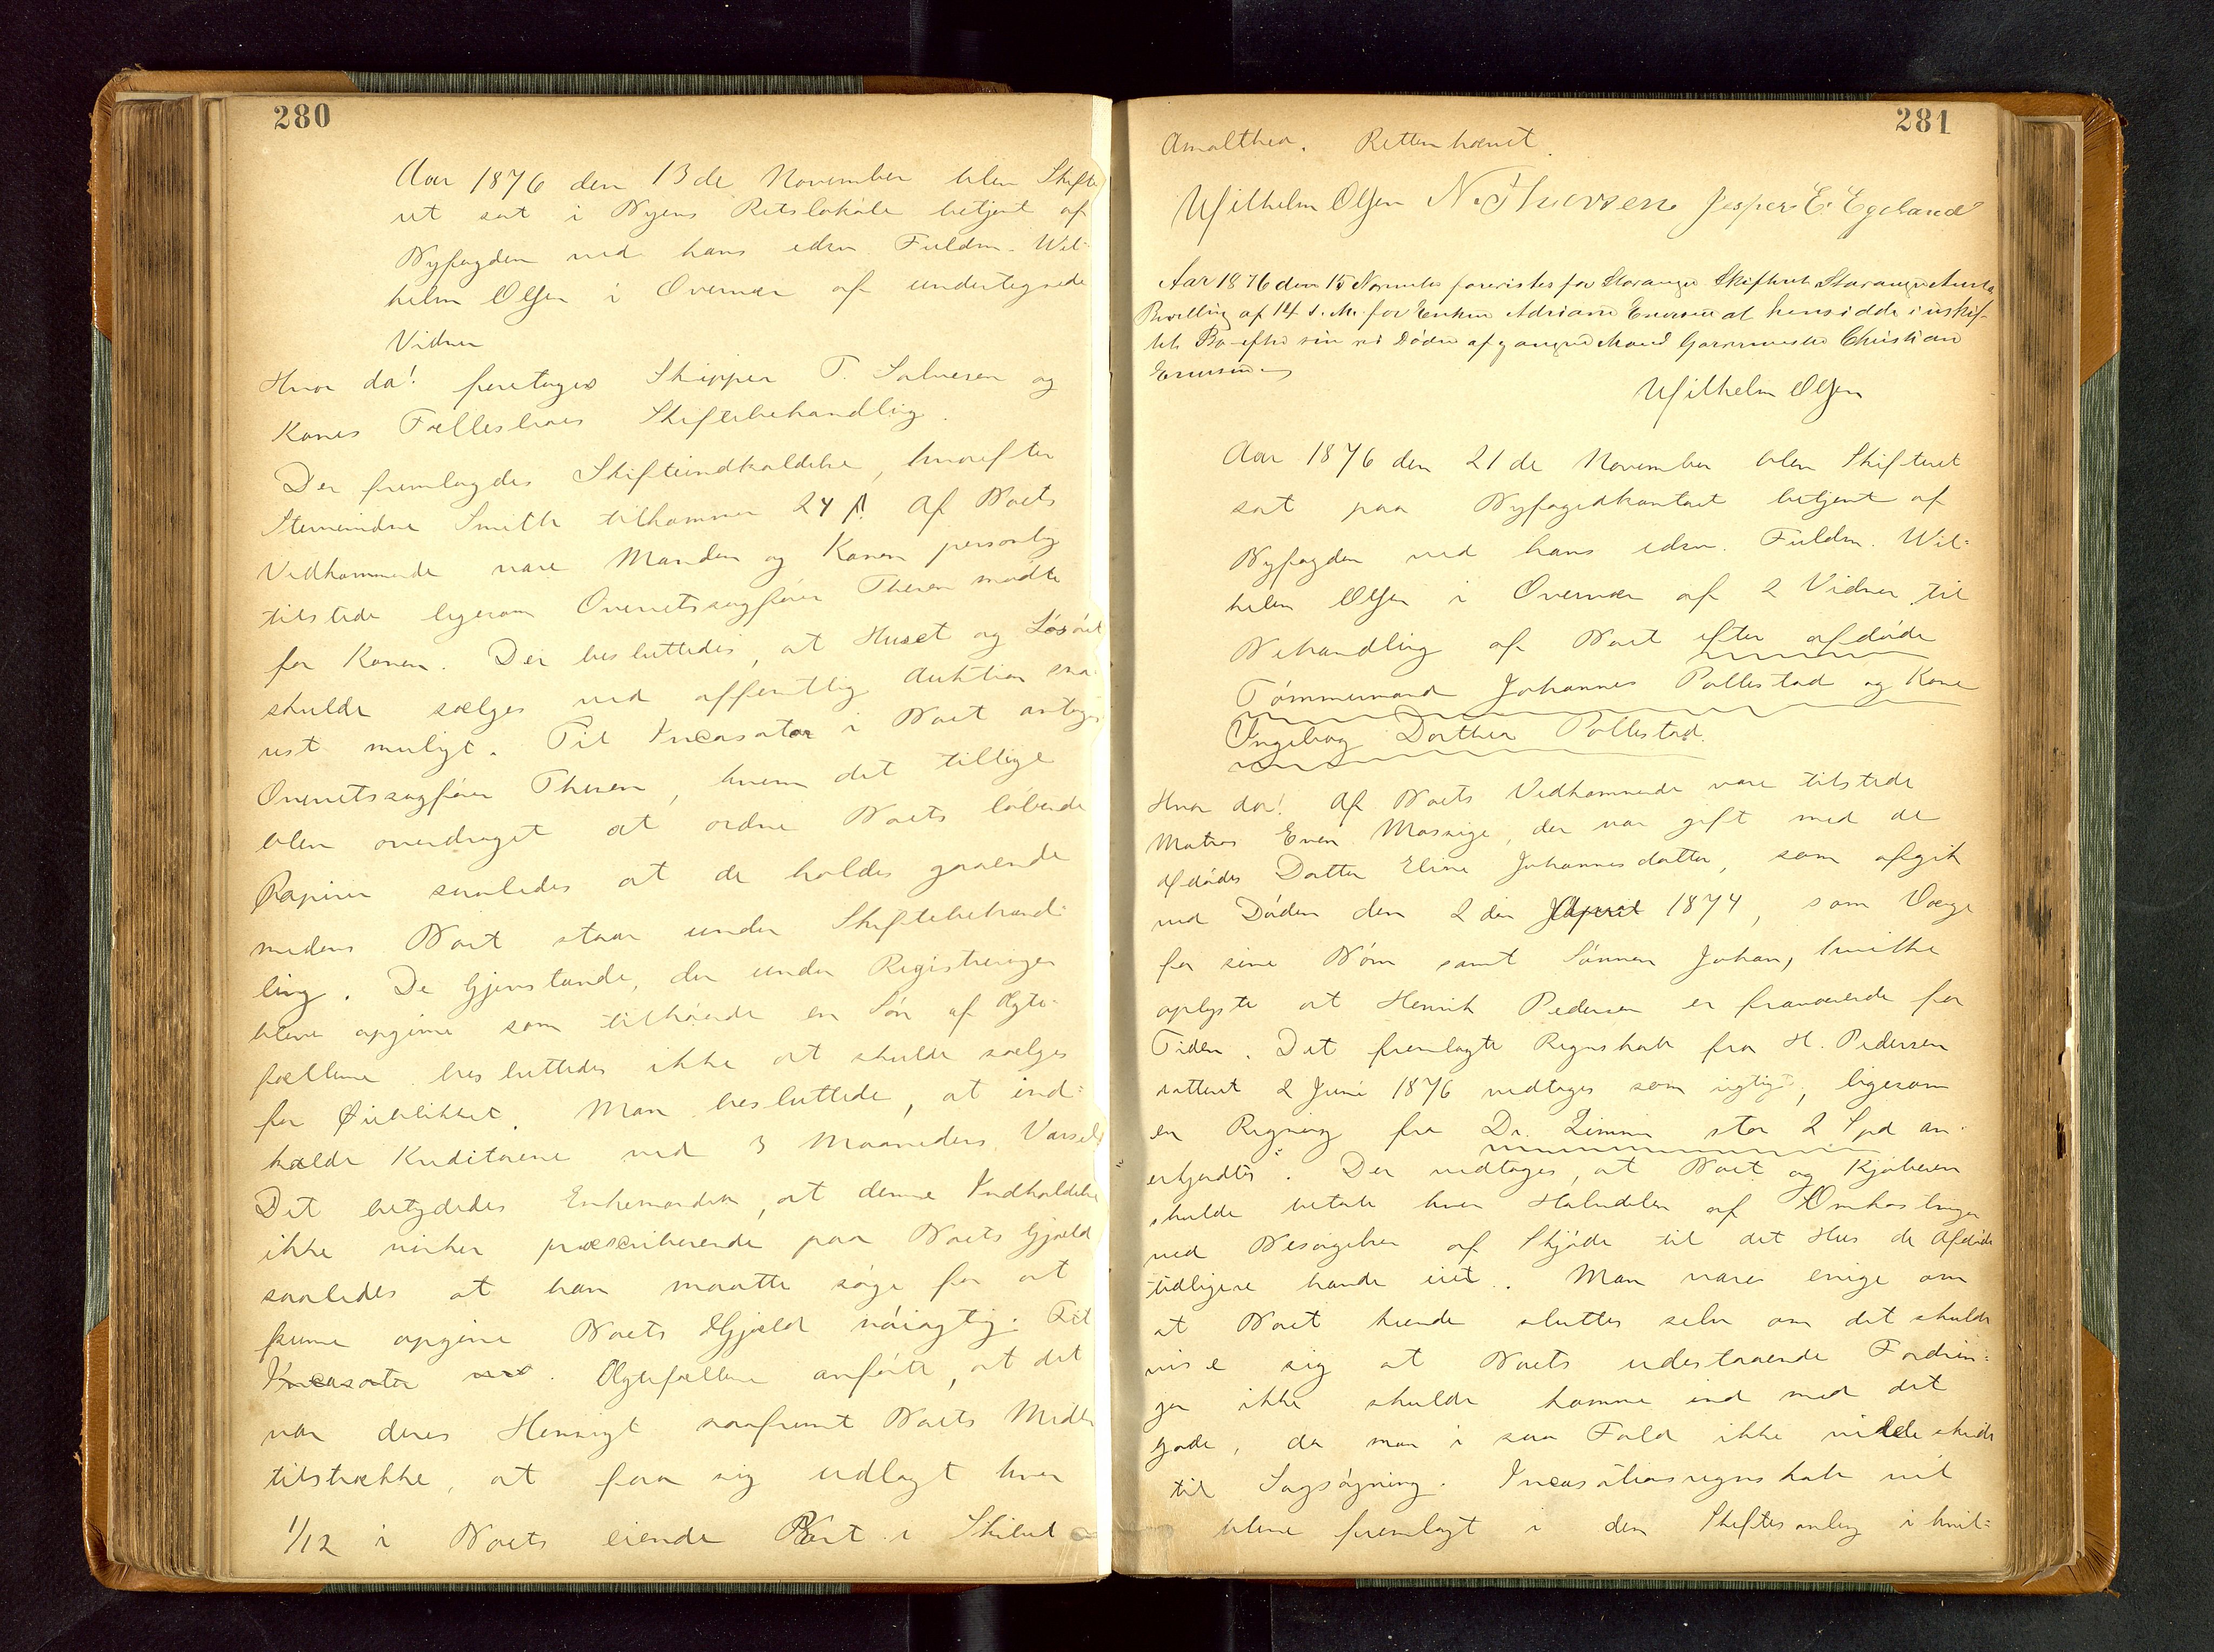 280
Aar 1876 den 13de November blev Skifte
ret sat i Byens Retslokale betjent af
Byfogden ved hans edsv. Fuldm. Wil-
helm Olsen i Overvær af undertegnede
Vidner
Hvor da! foretoges Skipper T. Salvesen og
Kones Fællesboes Skiftebehandling.
Der fremlagdes Skifteindkaldelse, hvorefter
Stevnevidne Smith tilkommer 24 β. Af Boets
Vedkommende vare Manden og Konen personlig
tilstede ligesom Overretssagfører Thesen mødte
for Konen. Der besluttedes, at Huset og Løsøret
skulde sælges ved offentlig Auktion sna-
rest muligt. Til Incasator i Boet antoges
Overretssagfører Thesen, hvem det tillige
blev overdraget at ordne Boets løbende
Papirer saaledes at de holdes gaaende
medens Boet staar under Skiftebehand-
ling. De Gjenstande, der under Registreringen
bleve opgivne som tilhørende en Søn af Ægte-
fællerne besluttedes ikke at skulde sælges
for Øieblikket. Man besluttede, at ind-
kalde Kreditorerne med 3 Maaneders Varsel
Det betydedes Enkemanden, at denne Indkaldelse
ikke virker præscriberende paa Boets Gjæld
saaledes at han maatte søge for at
kunne opgive Boets Gjæld nøiagtig. Til
Incasator. Ægtefællerne anførte, at det
var deres Hensigt saafremt Boets Midler
tilstrække, at faa sig udlagt hver
1/12 i Boets eiende Part i Skibet
281
Amalthea. Retten hævet.
Wilhelm Olsen N. Thorsen Jesper E. Egeland
Aar 1876 den 15 November forevistes for Stavanger Skifteret Stavanger Amts
Bevilling af 14 d. M. for Enken Adriane Enersen at hensidde i uskif-
tet Bo efter sin ved Døden afgangne Mand Garvermester Christian
Enersen
Wilhelm Olsen
Aar 1876 den 21de November blev Skifteret
sat paa Byfogedkontoret betjent af
Byfogden ved hans edsv. Fuldm. Wil-
helm Olsen i Overvær af 2 Vidner til
Behandling af Boet efter afdøde
Tømmermand Johannes Pollestad og Kone
Ingeborg Dorthea Pollestad.
Hvor da! Af Boets Vedkommende vare tilstede
Matros Even Massige, der var gift med de
afdødes Datter Eline Johannesdatter, som afgik
ved Døden den 2den April 1874, som Værge
for sine Børn samt Sønnen Johan, hvilke
oplyste at Henrik Pedersen er fraværende for
Tiden. Det fremlagte Regnskab fra H. Pedersen
dateret 2 Juni 1876 vedtoges som rigtigt, ligesom
en Regning fra Dr. Zimmer stor 2 Spd an-
erkjendtes. Der vedtoges, at Boet og Kjøberen
skulde betale hver Halvdelen af Omkostninger
ved Besørgelsen af Skjøde til det Hus de Afdøde
tidligere havde eiet. Man vare enige om
at Boet kunde sluttes selv om det skulde
vise sig at Boets udestaaende Fordrin-
ger ikke skulde komme ind med det
gode, da man i saa Fald ikke vilde skride
til Sagsøgning. Incasationsregnskab vil
blive fremlagt i den Skiftesamling i hvil-